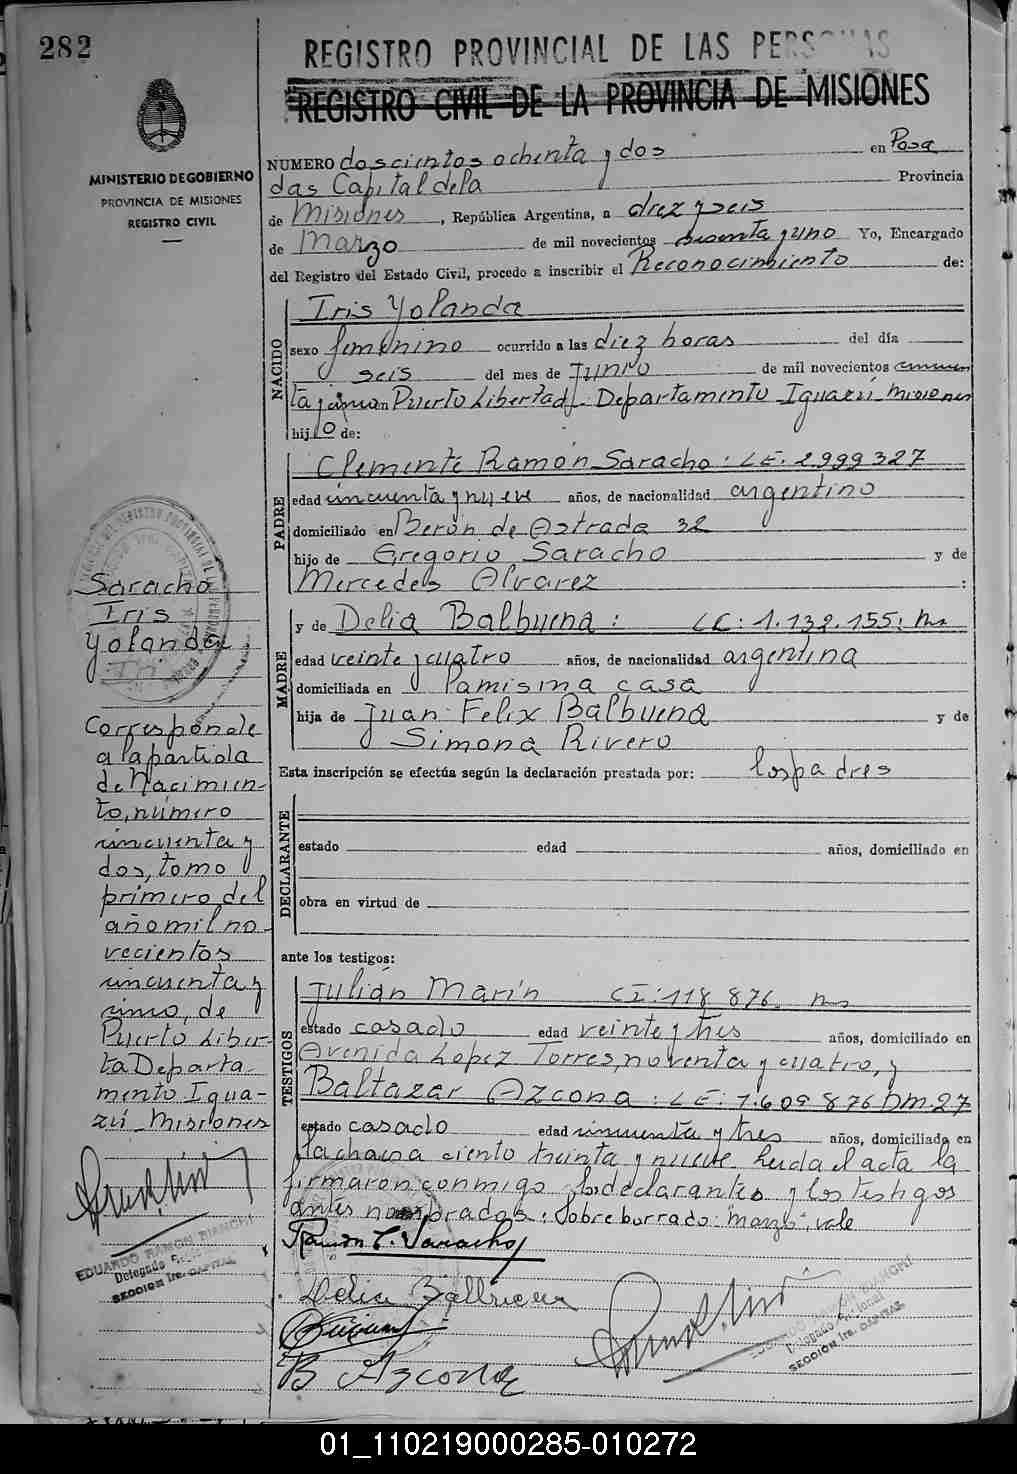 282
REGISTRO PROVINCIAL DE LAS PERSONAS
REGISTRO CIVIL DE LA PROVINCIA DE MISIONES
MINISTERIO DE GOBIERNO
PROVINCIA DE MISIONES
REGISTRO CIVIL
NUMERO doscientos ochenta y dos en Posa
das Capital de la Provincia
de Misiones, República Argentina, a diez y seis
de Marzo de mil novecientos sesenta y uno Yo, Encargado
del Registro del Estado Civil, procedo a inscribir el Reconocimiento de:
NACIDO
Iris Yolanda
sexo femenino ocurrido a las diez horas del día
seis del mes de Junio de mil novecientos cincuen
ta y cinco en Puerto Libertad - Departamento Iguazú - Misiones
hij o de:
PADRE
Clemente Ramón Saracho: LE. 2.999.327
edad cincuenta y nueve años, de nacionalidad argentino
domiciliado en Berón de Astrada 32
hijo de Gregorio Saracho y de
Mercedes Alvarez :
MADRE
y de Delia Balbuena: LC: 1.132.155: Ms
edad veinte y cuatro años, de nacionalidad argentina
domiciliada en la misma casa
hija de Juan Felix Balbuena y de
Simona Rivero
Esta inscripción se efectúa según la declaración prestada por: los padres
DECLARANTE
estado edad años, domiciliado en
obra en virtud de
ante los testigos:
TESTIGOS
Julián Marín CI: 118.876 Ms
estado casado edad veinte y tres años, domiciliado en
Avenida Lopez Torres, noventa y cuatro, y
Baltazar Azcona: LE: 1.609.876 DM. 27
estado casado edad cincuenta y tres años, domiciliado en
la chacra ciento treinta y nueve. Leida el acta la
firmaron conmigo los declarantes y los testigos
antes nombrados: Sobre borrado: "marzo", vale
Ramon C. Saracho
Delia Balbuena
B Azcona
Saracho
Iris
Yolanda
Corresponde
a la partida
de Nacimien-
to, número
cincuenta y
dos, tomo
primero del
año mil no-
vecientos
cincuenta y
cinco, de
Puerto Liber-
ta Departa-
mento Igua-
zú - Misiones
EDUARDO RAMON BIANCHI
Delegado
SECCION 1ra. CAPITAL
BIANCHI
Delegado
SECCION 1ra. CAPITAL
01_110219000285-010272